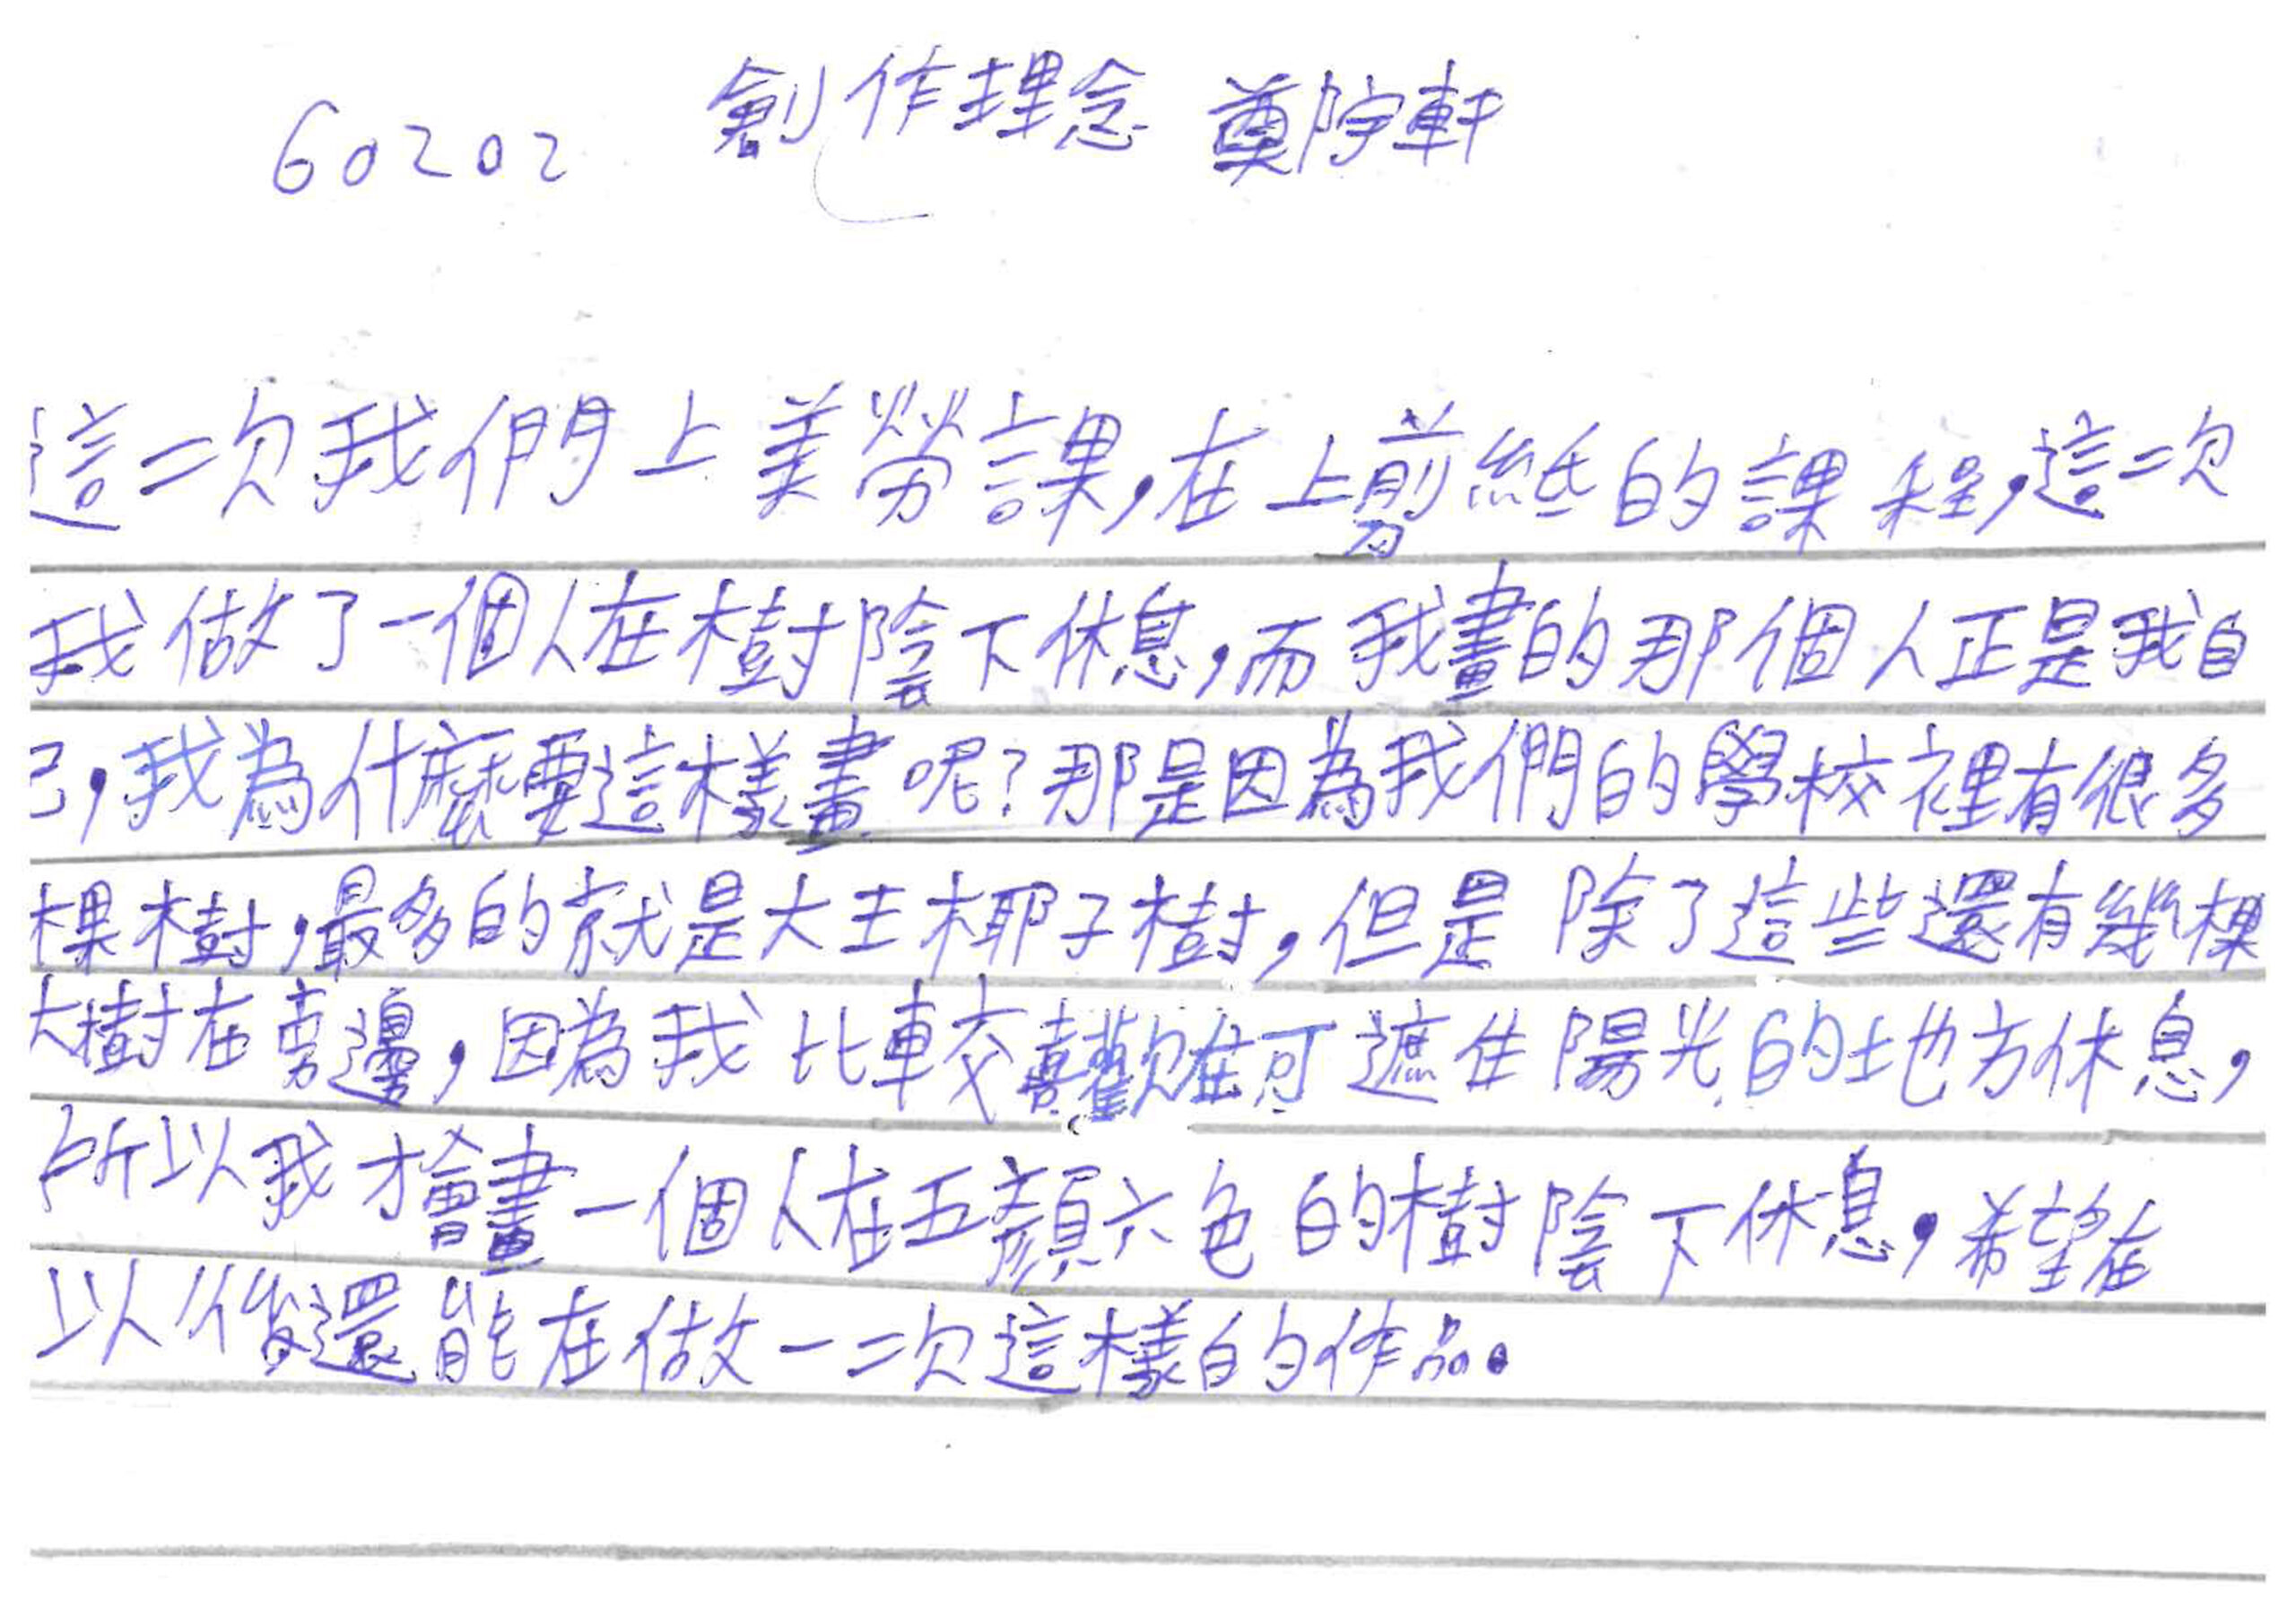 60202 創作理念 鄭宇軒
這次我們上美勞課,在上剪紙的課程,這次
我做了一個人在樹陰下休息,而我畫的那個人正是我自
己,我為什麼要這樣畫呢?那是因為我們的學校裡有很多
棵樹,最多的就是大王椰子樹,但是除了這些還有幾棵
大樹在旁邊,因為我比較喜歡在可遮住陽光的地方休息,
所以我才會畫一個人在五顏六色的樹陰下休息,希望在
以後還能在做一次這樣的作品。